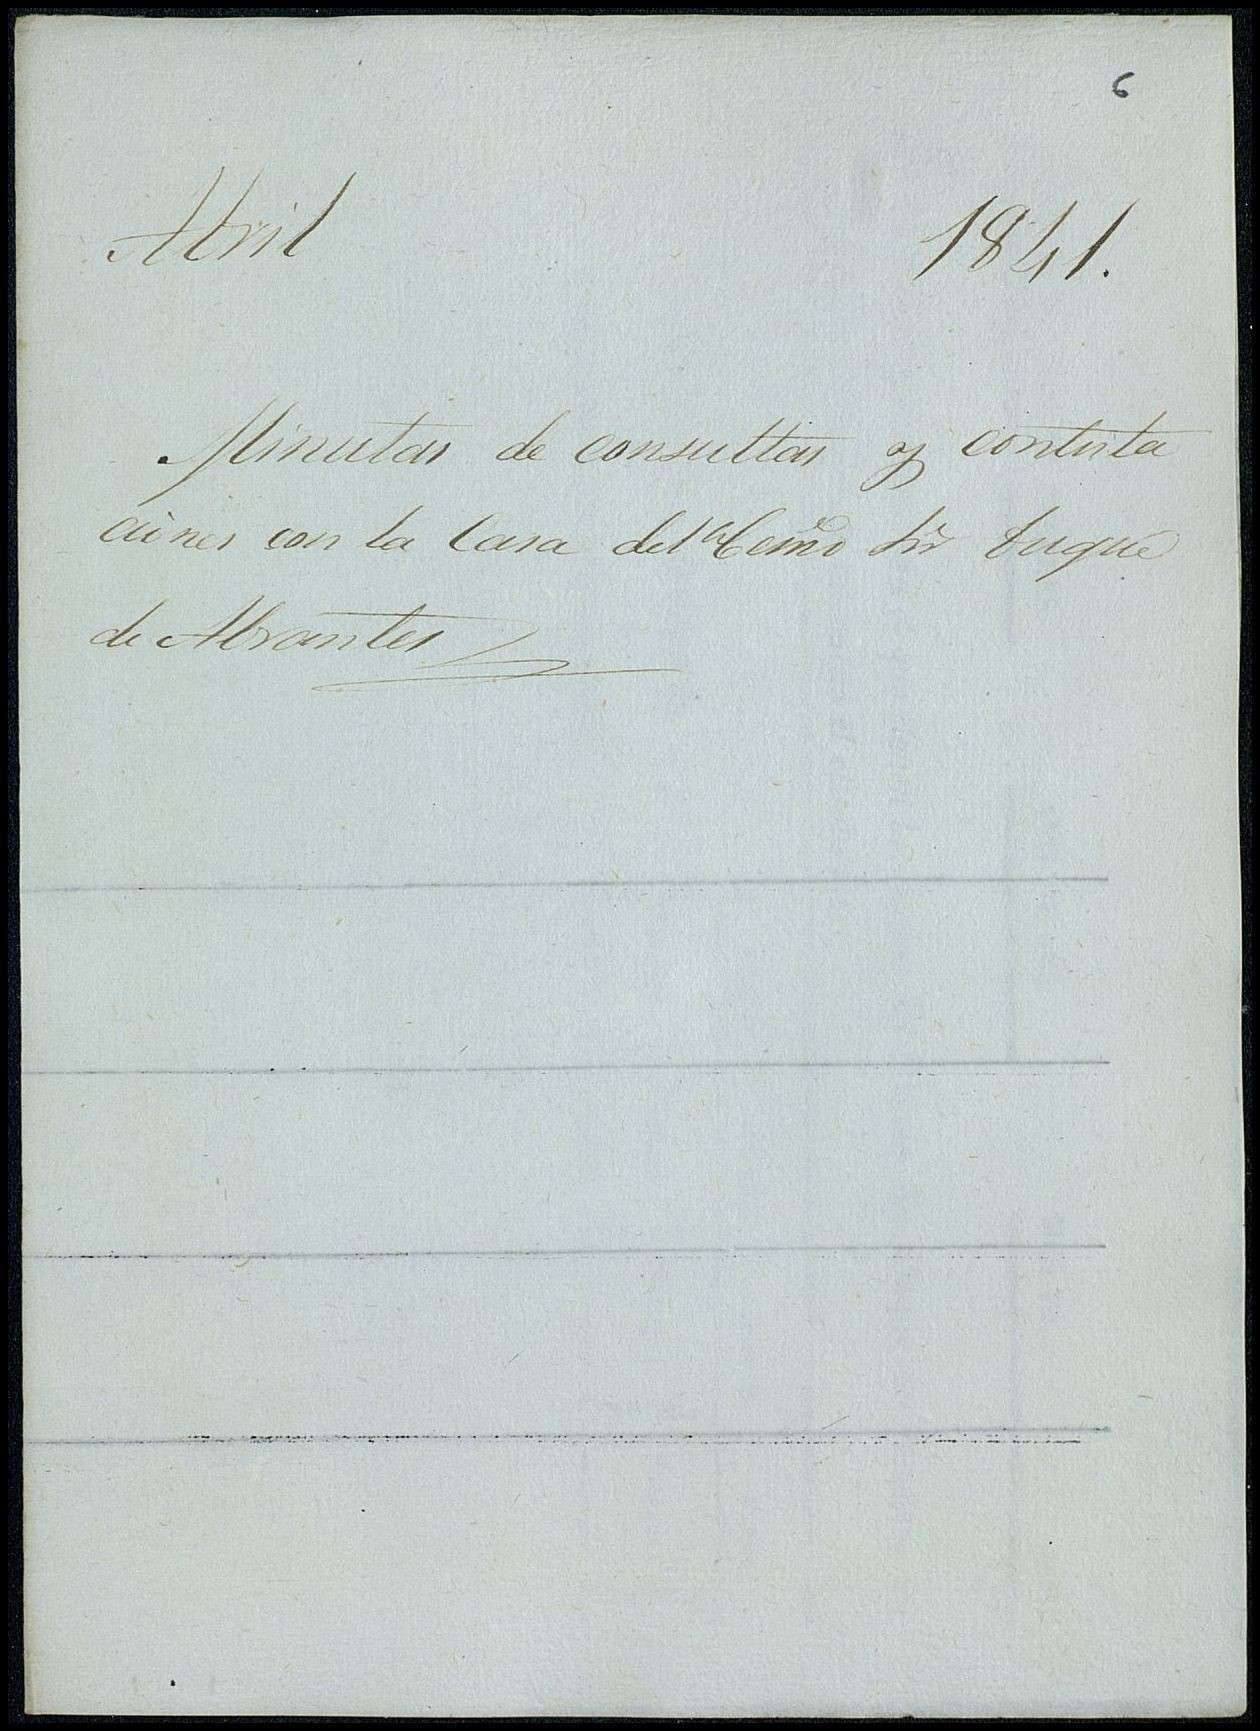 6
Abril 1841.
Minutas de consultas y contesta
ciones con la Casa del Excmo Sr Duque
de Abrantes